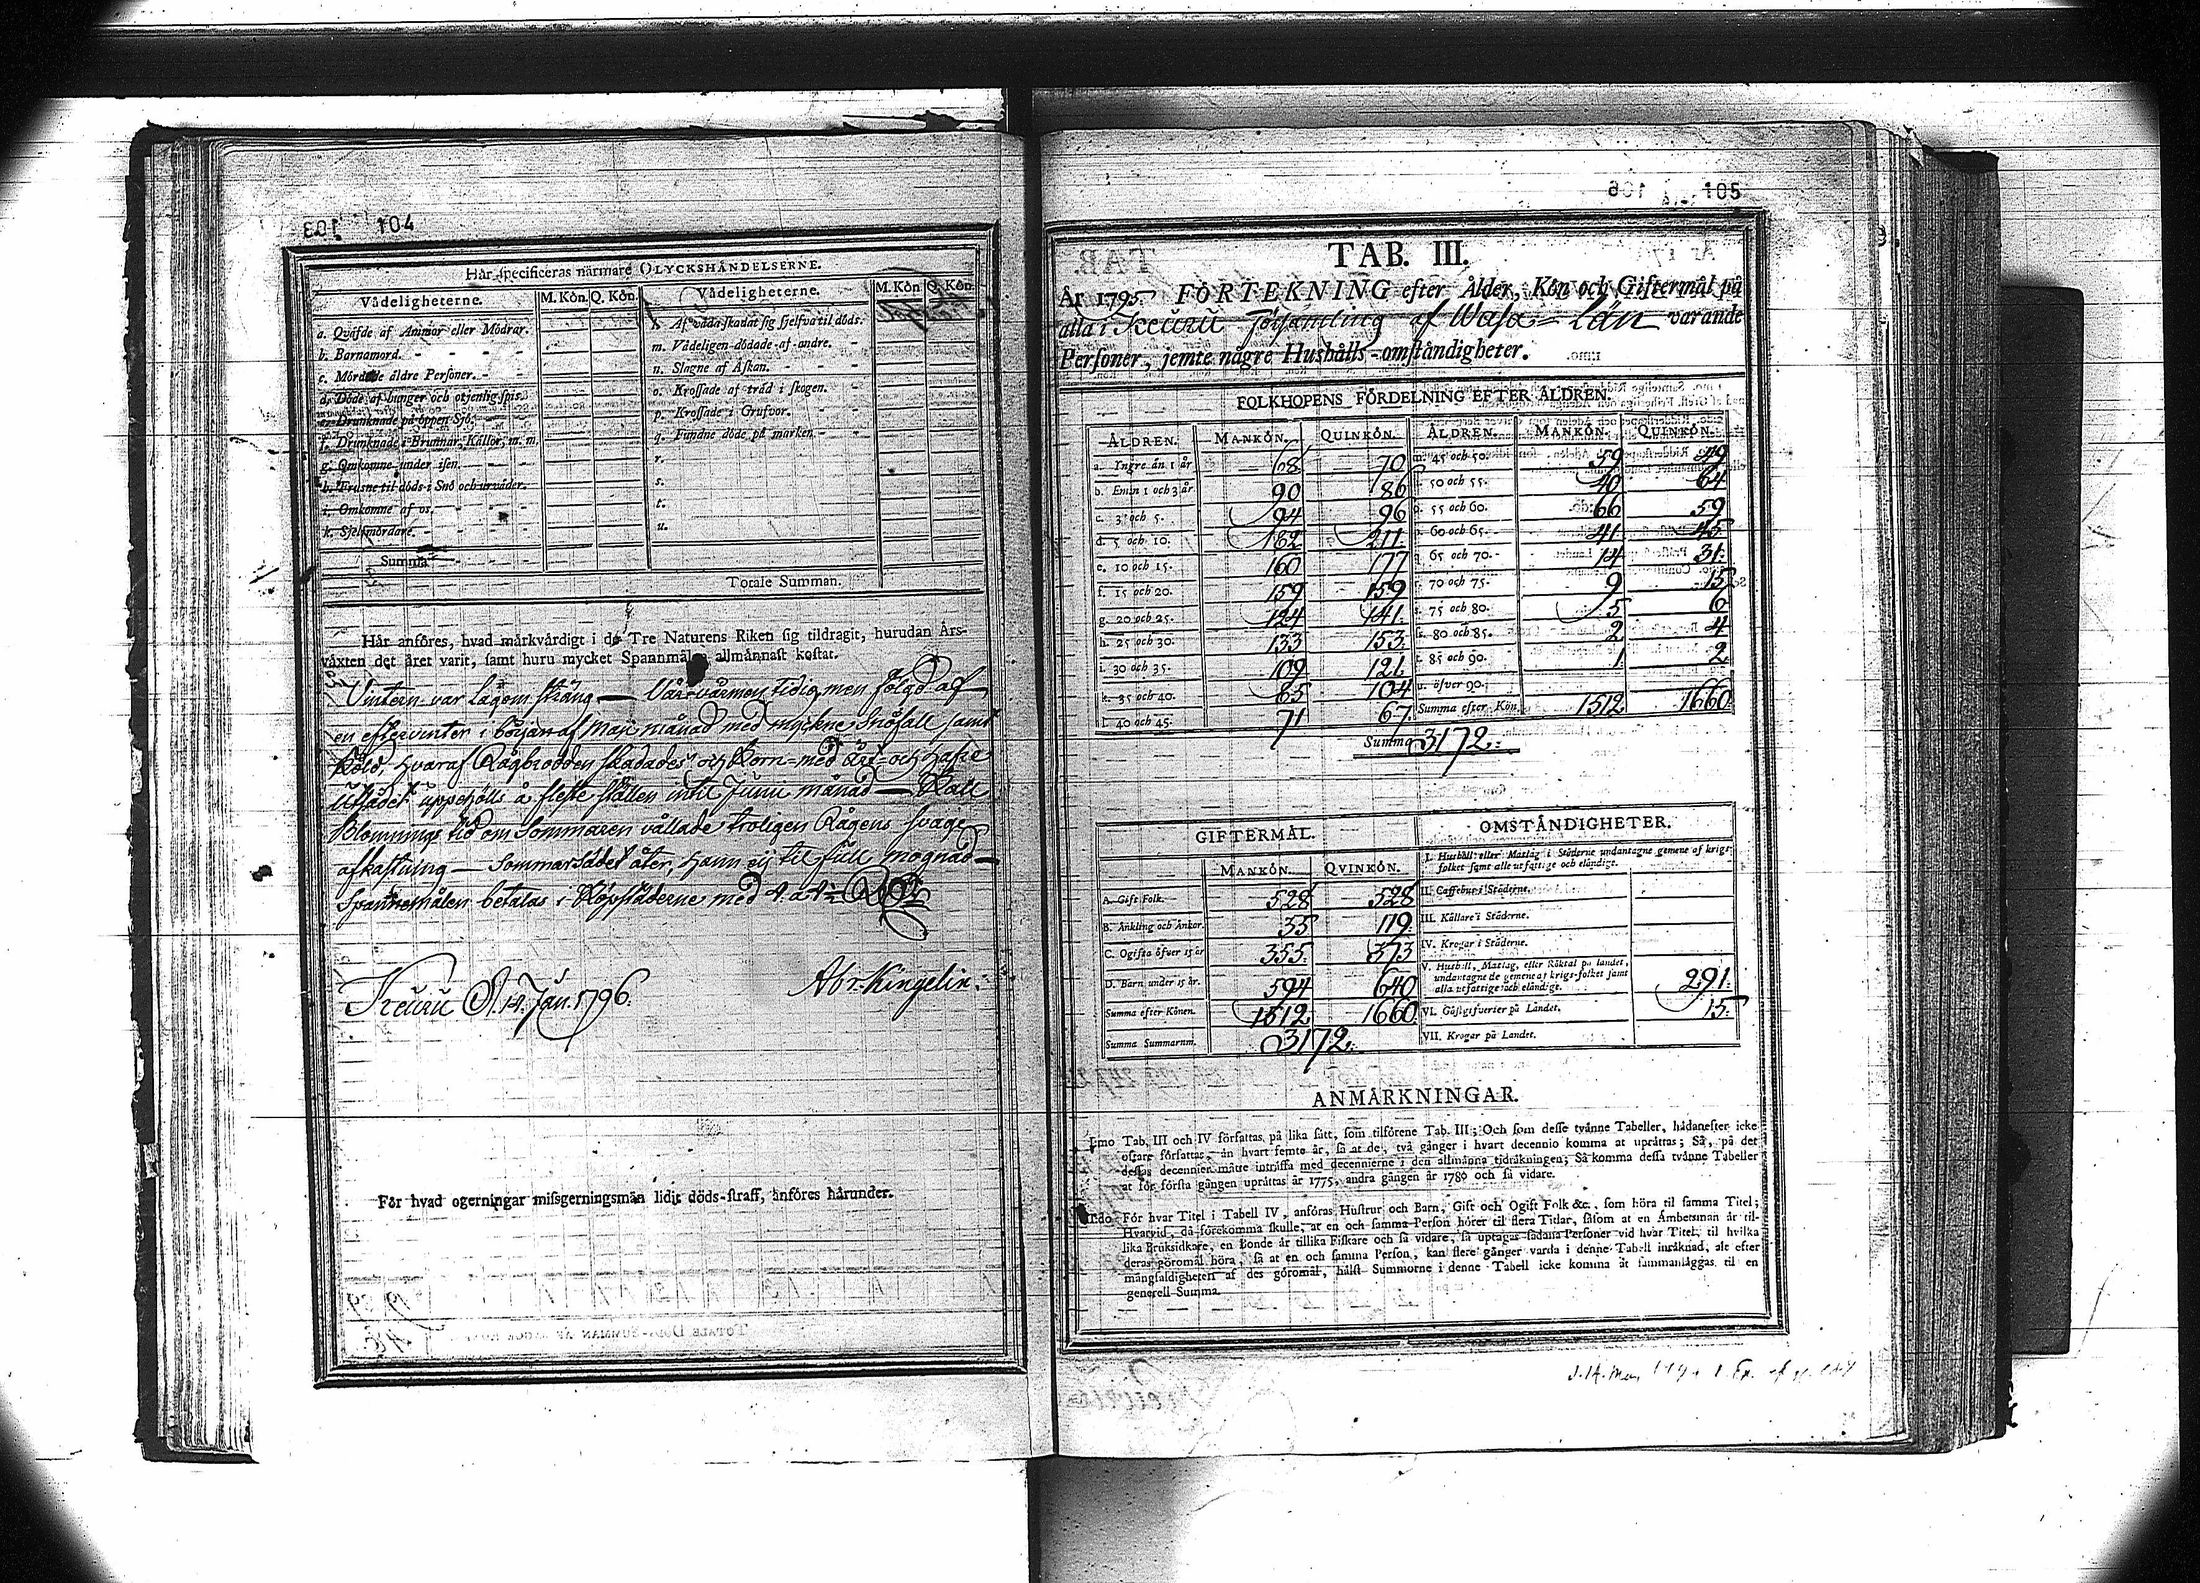 104
Här specificeras närmare OLYCKSHÄNDELSERNE.
Vådeligheterne. M. Kön. Q. Kön. Vådeligheterne. M. Kön Q. Kön.
a. Qväfde af Ammor eller Mödrar. l. Af våda skadat sig sjelfva til döds.
b. Barnamord. m. Vådeligen dödade af andre.
c. Mördade äldre Personer. n. Slagne af Åskan.
d. Döde af hunger och otjenlig spis. o. Krossade af träd i skogen.
e. Drunknade på öppen Sjö. p. Krossade i Grufvor.
f. Drunknade i Brunnar, Källor, m. m. q. Fundne döde på marken
g. Omkomne under isen. r.
h. Frusne til döds i Snö och urväder. s.
i. Omkomne af os. t.
k. Sjelfmördare. u.
Summa
Totale Summan.
Här anföres, hvad märkvärdigt i de Tre Naturens Riken sig tildragit, hurudan Års-
växten det året varit, samt huru mycket Spannmålen allmännast kostat.
Vintern var lagom sträng — Vårvärmen tidig men följd af
en eftervinter i början af Maji månad med myckne Snöfall samt
Köld, hvaraf Rågbrodden skadades och Korn- med Ärt- och Hafre
Utsädet uppehölls å fleste ställen intil Junii månad — Kall
Blomnings tid om Sommaren vållade troligen Rågens svage
afkastning — Sommarsädet åter, hann ej til full mognad —
Spannemålen betalas i Köpstäderne med 4 a
Keuru d. 14. Jan. 1796. Abr. Kingelin.
För hvad ogerningar missgerningsmän lidit döds-straff, anföres härunder.
105
TAB. III.
År 1795 FÖRTEKNING efter Ålder, Kön och Giftermål på
alla i Keuru Församling af Wasa Län varande
Personer, jemte någre Hushålls-omständigheter.
FOLKHOPENS FÖRDELNING EFTER ÅLDREN.
ÅLDREN. MANKÖN. QUINKÖN. ÅLDREN. MANKÖN. QUINKÖN.
a. Yngre än 1 år 68 70 m. 45 och 50. 59 49
b. Emin 1 och 3 år 90 86 n. 50 och 55. 40 64
c. 3 och 5. 94 96 o. 55 och 60. 66 59
d. 5 och 10. 182 211 p. 60 och 65. 41 45
e. 10 och 15. 160 177 q. 65 och 70. 14 31
f. 15 och 20. 159 159 r. 70 och 75. 9 15
g. 20 och 25. 124 141 s. 75 och 80. 5 6
h. 25 och 30. 133 153 80 och 85. 2 4
i. 30 och 35. 109 121 t. 85 och 90. 1 2
k. 35 och 40. 85 104 u. öfver 90.
l. 40 och 45. 71 67 Summa efter Kön. 1512 1660
Summa 3172
GIFTERMÅL. OMSTÄNDIGHETER.
MANKÖN. QVINKÖN. I. Hushåll eller Matlag i Städerne undantagne gemene af krigs-
folket samt alle utfattige och eländige.
A. Gift Folk. 528 528 II. Caffehus i Städerne.
B. Änkling och Änkor. 35 119 III. Källare i Städerne.
C. Ogifta öfver 15 år 355 373 IV. Krogar i Städerne.
D. Barn under 15 år. 594 640 V. Hushåll, Matlag, eller Röktal på landet,
undantagne de gemene af krigs-folket samt
alla utfattige och eländige. 291
Summa efter Könen. 1512 1660 VI. Gästgifverier på Landet. 15
Summa Summarum. 3172 VII. Krogar på Landet.
ANMÄRKNINGAR.
I:mo Tab. III och IV författas på lika sätt, som tilförene Tab. III; Och som desse tvänne Tabeller, hädanefter icke
oftare författas, än hvart femte år, så at de, två gånger i hvart decennio komma at uprättas; Så, på det
dessas decennier måtte inträffa med decennierne i den allmänna tidräkningen; Så komma dessa tvänne Tabeller
at för första gången uprättas år 1775, andra gången år 1780 och så vidare.
II:do För hvar Titel i Tabell IV, anföras Hustrur och Barn, Gift och Ogift Folk &c., som höra til samma Titel;
Hvarvid, då förekomma skulle, at en och samma Person hörer til flera Titlar, såsom at en Ämbetsman är til-
lika Bruksidkare, en Bonde är tillika Fiskare och så vidare, så uptagas sådana Personer vid hvar Titel, til hvilka
deras göromål höra, så at en och samma Person, kan flere gånger varda i denne Tabell inräknad, alt efter
mångfaldigheten af des göromål, hälst Summorne i denne Tabell icke komma at sammanläggas til en
generell Summa.